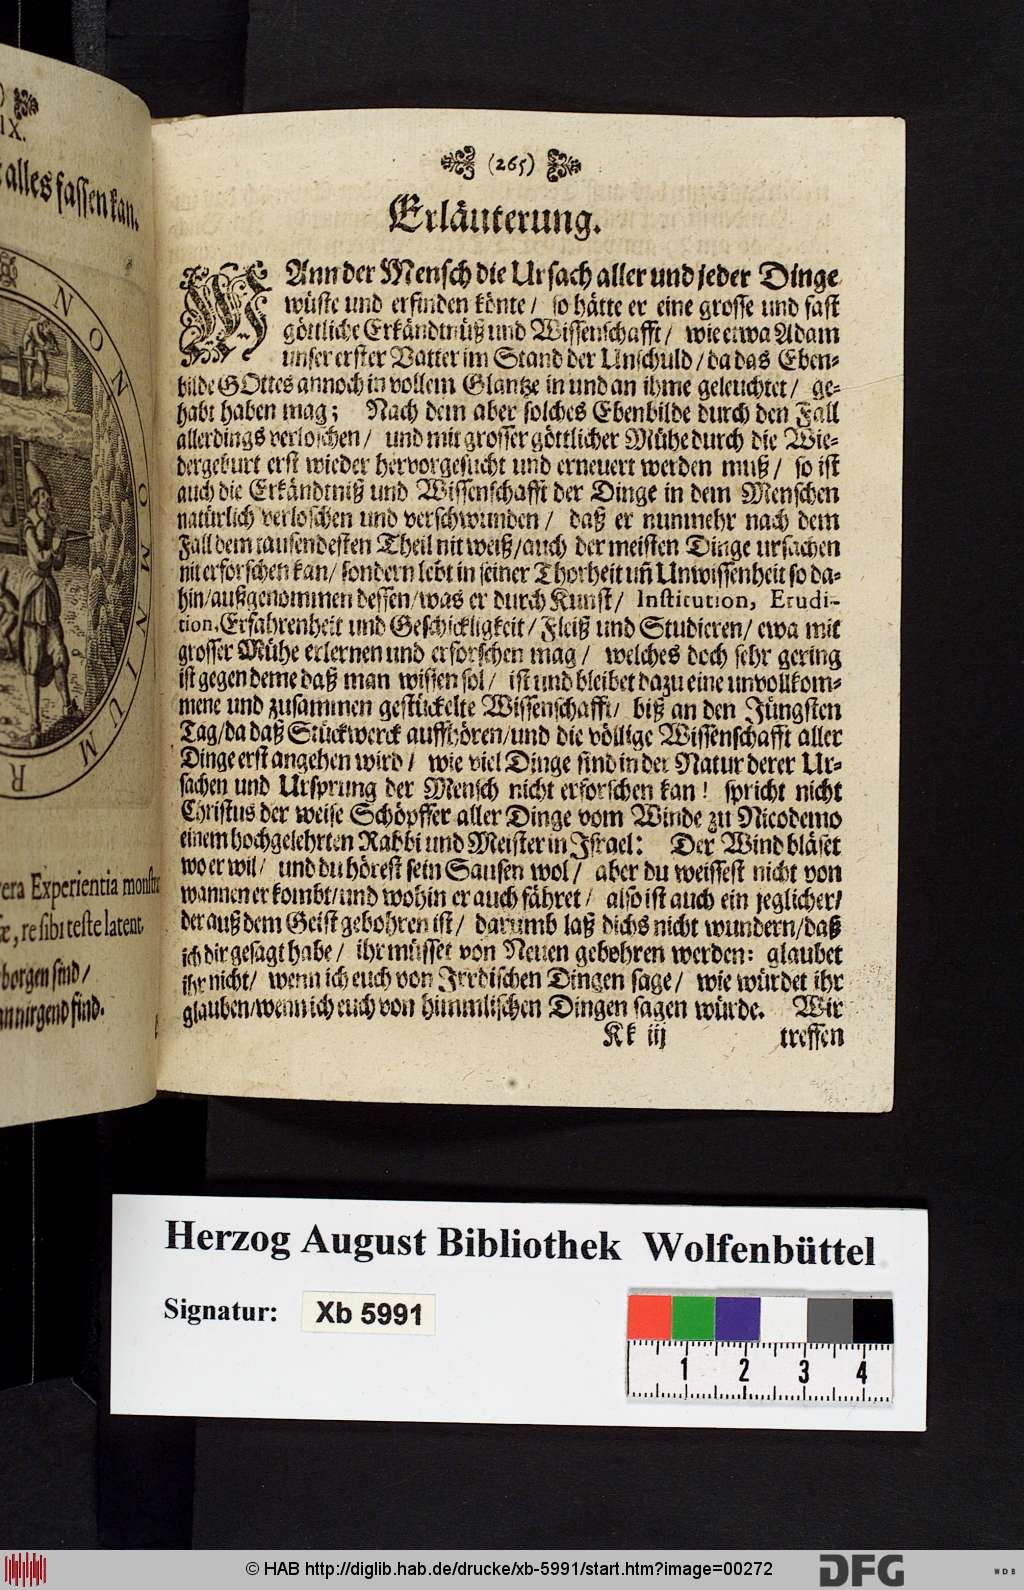 IX.
alles fassen kan.
NON OMNIUM R
vera Experientia monstrat
re sibi teste latent.
borgen sind /
nirgend find.
(265)
Erläuterung.
WAnn der Mensch die Ursach aller und jeder Dinge
wüste und erfinden könte / so hätte er eine grosse und fast
göttliche Erkändtnüß und Wissenschafft / wie etwa Adam
unser erster Vatter im Stand der Unschuld / da das Eben-
bilde GOttes annoch in vollem Glantze in und an ihme geleuchtet / ge-
habt haben mag; Nach dem aber solches Ebenbilde durch den Fall
allerdings verloschen / und mit grosser göttlicher Mühe durch die Wie-
dergeburt erst wieder hervorgesucht und erneuert werden muß / so ist
auch die Erkändtniß und Wissenschafft der Dinge in dem Menschen
natürlich verloschen und verschwunden / daß er nunmehr nach dem
Fall dem tausendesten Theil nit weiß / auch der meisten Dinge ursachen
nit erforschen kan / sondern lebt in seiner Thorheit uñ Unwissenheit so da-
hin / außgenommen dessen / was er durch Kunst / Institution, Erudi-
tion, Erfahrenheit und Geschickligkeit / Fleiß und Studieren / etwa mit
grosser Mühe erlernen und erforschen mag / welches doch sehr gering
ist gegen deme daß man wissen sol / ist und bleibet dazu eine unvollkom-
mene und zusammen gestückelte Wissenschafft / biß an den Jüngsten
Tag / da daß Stückwerck auffhören / und die völlige Wissenschafft aller
Dinge erst angehen wird / wie viel Dinge sind in der Natur derer Ur-
sachen und Ursprung der Mensch nicht erforschen kan! spricht nicht
Christus der weise Schöpffer aller Dinge vom Winde zu Nicodemo
einem hochgelehrten Rabbi und Meister in Israel: Der Wind bläset
wo er wil / und du hörest sein Sausen wol / aber du weissest nicht von
wannen er kombt / und wohin er auch fähret / also ist auch ein jeglicher /
der auß dem Geist gebohren ist / darumb laß dichs nicht wundern / daß
ich dir gesagt habe / ihr müsset von Neuen gebohren werden: glaubet
ihr nicht / wenn ich euch von Irrdischen Dingen sage / wie würdet ihr
glauben / wenn ich euch von himmlischen Dingen sagen würde. Wir
Kk iij treffen
Herzog August Bibliothek Wolfenbüttel
Signatur: Xb 5991
1 2 3 4
© HAB http://diglib.hab.de/drucke/xb-5991/start.htm?image=00272
DFG
WDB